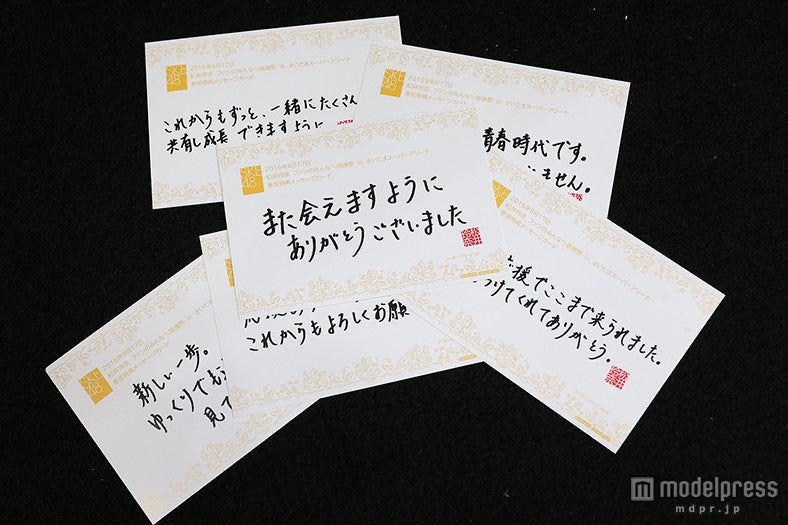 SKE48
2015年8月17日
松井玲奈 ファンのみんなへ感謝祭 in さいたまスーパーアリーナ
参加特典メッセージカード
これからもずっと、一緒にたくさん
共有し成長できますように
SKE48
2015年8月17日
松井玲奈 ファンのみんなへ感謝祭 in さいたまスーパーアリーナ
参加特典メッセージカード
青春時代です。
ません。
SKE48
2015年8月17日
松井玲奈 ファンのみんなへ感謝祭 in さいたまスーパーアリーナ
参加特典メッセージカード
また会えますように
ありがとうございました
2015年8月17日
松井玲奈 ファンのみんなへ感謝祭 in さいたまスーパーアリーナ
参加特典メッセージカード
応援でここまで来られました。
つけてくれてありがとう。
これからもよろしくお願
SKE48
2015年8月17日
松井玲奈 ファンのみんなへ感謝祭 in さいたま
参加特典メッセージカード
新しい一歩。
ゆっくりでも
見て
modelpress
mdpr.jp